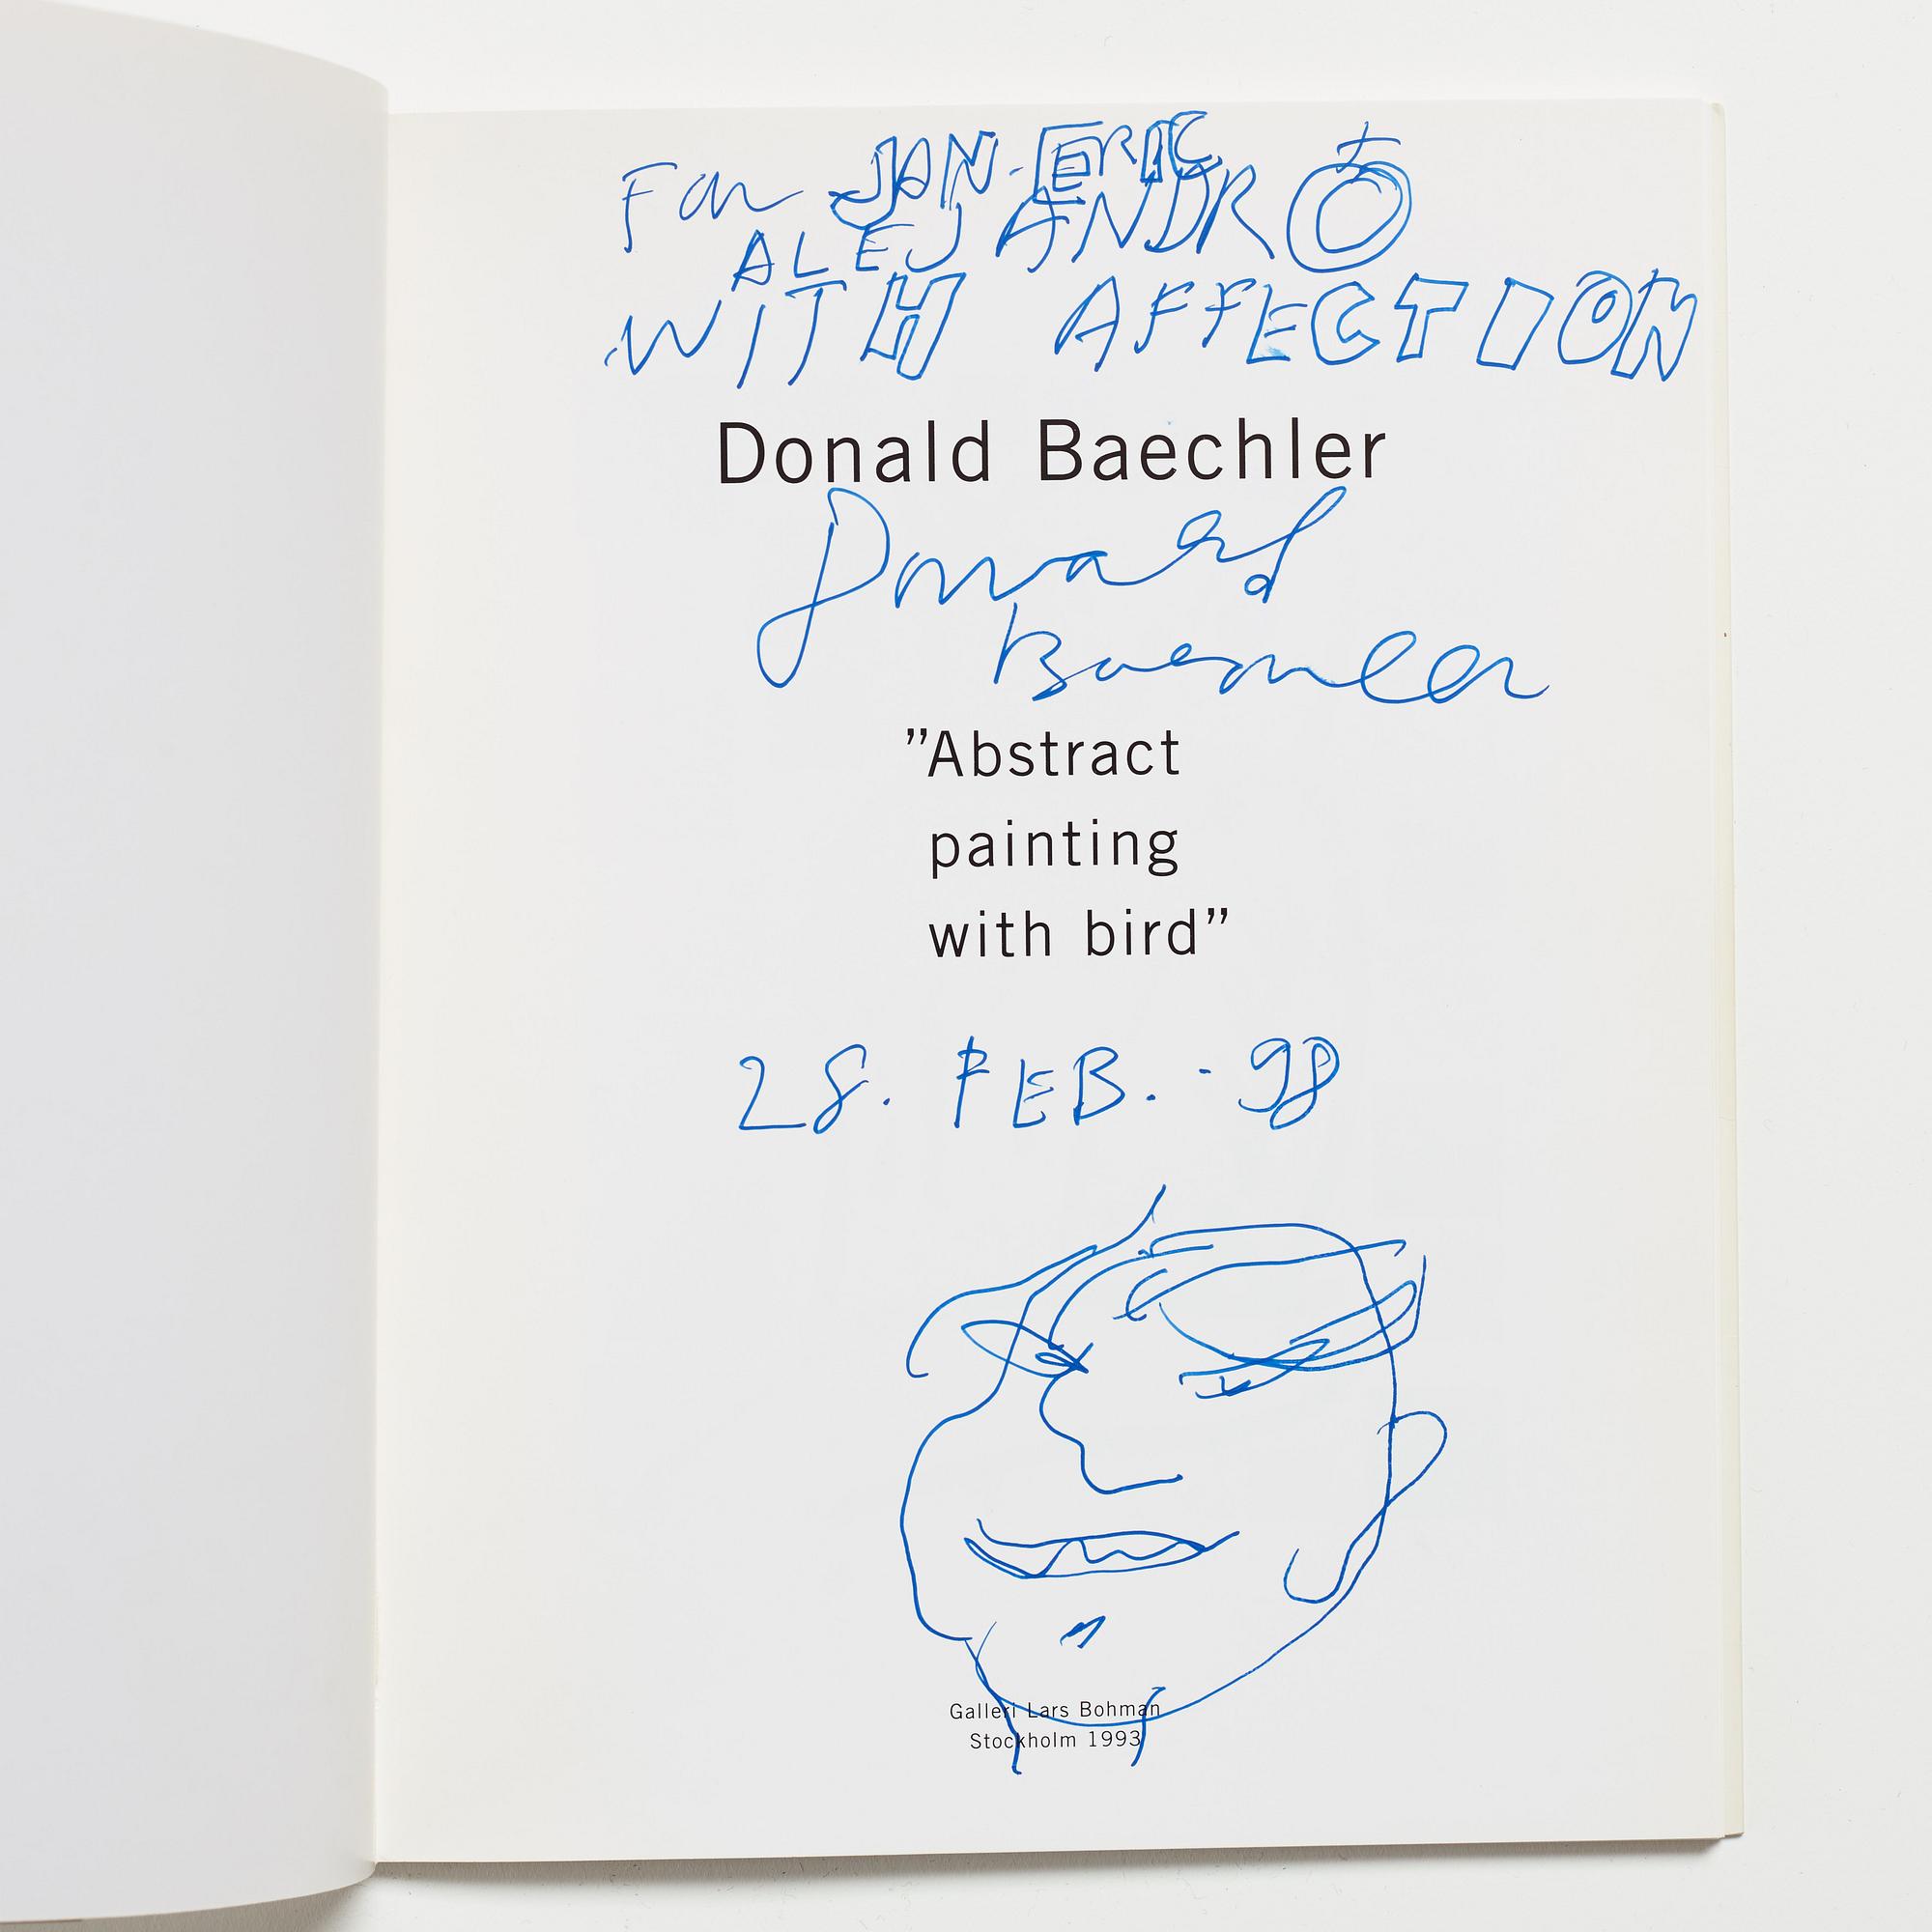 For JAN-ERIC
ALEJANDRO
WITH AFFECTION
Donald Baechler
Donald
Baechler
”Abstract
painting
with bird”
28. FEB. - 98
Galleri Lars Bohman
Stockholm 1993